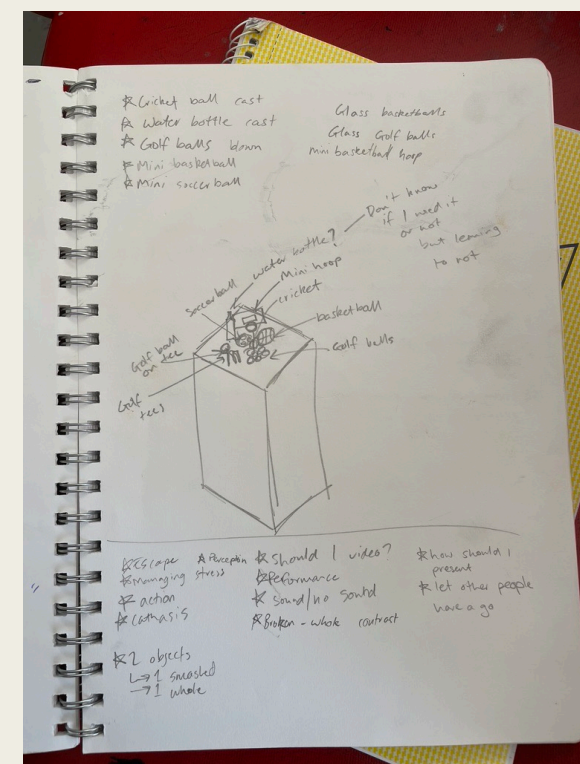 Cricket ball cast
Water bottle cast
Golf balls blown
Mini basketball
Mini soccerball
Glass basketballs
Glass Golf balls
mini basketball hoop
Don't know
if I need it
or not
but leaning
to not
water bottle?
Mini hoop
cricket
soccerball
basketball
Golf balls
Golf ball
on tee
Golf
tees
Escape
managing stress
action
cathasis
Perception
Should I video?
Performance
Sound/no sound
Broken - whole contrast
how should I
present
let other people
have a go
2 objects
↳ 1 smashed
→ 1 whole